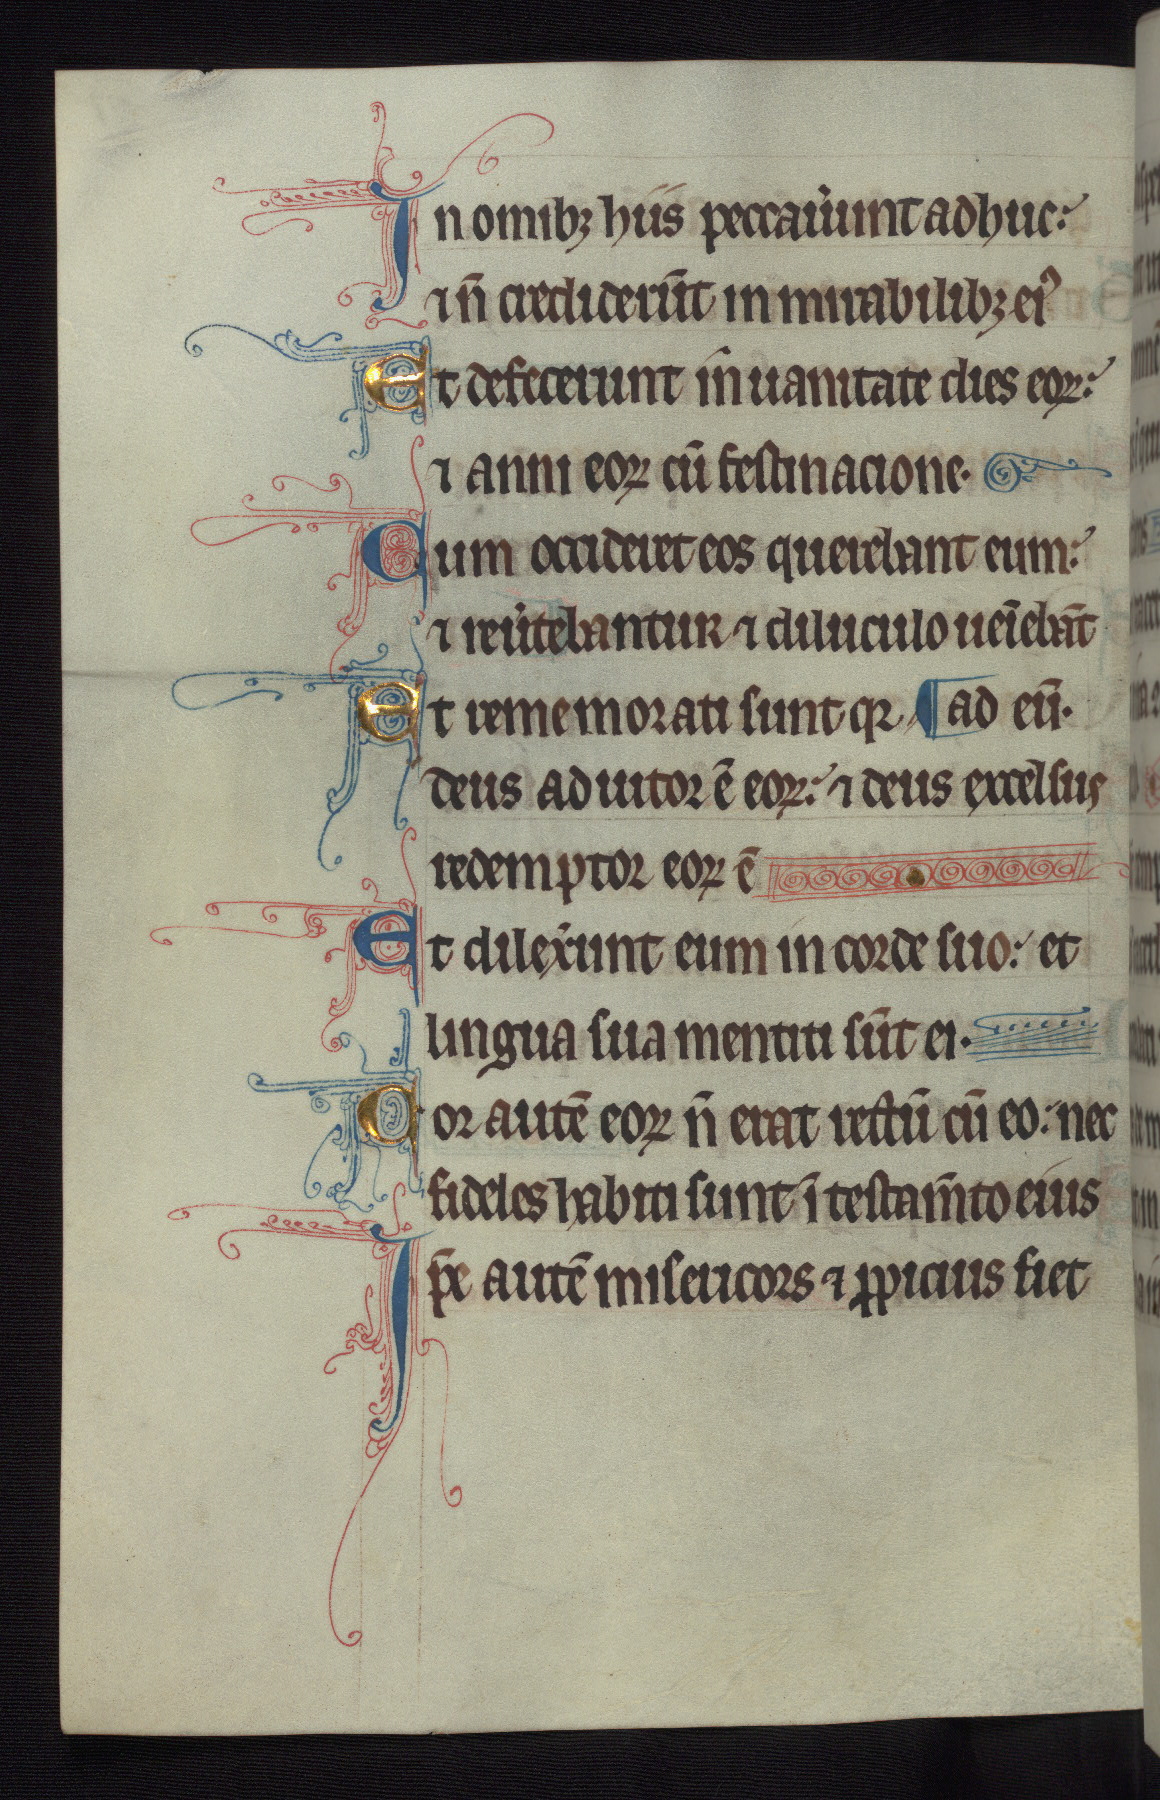 In omībꝫ hiis peccaủunt adhuc:
⁊ n̄ crediderūt in mirabilibꝫ ei⁹
Et defecerunt in uanitate dies eoꝝ:
⁊ anni eoꝝ cū festinacione.
Cum occideret eos querebant eum:
⁊ reủtebantur ⁊ diluculo ueīebāt
Et rememorati sunt qꝛ ¶ ad eū.
deus adiutor ē eoꝝ: ⁊ deus excelsus
redemptor eoꝝ ē
Et dilex̉unt eum in corde suo: et
lingua sua mentiti sūt ei.
Cor autē eoꝝ n̄ erat rectū cū eo: nec
fideles habiti sunt ī testam̄to eius
Ip̄e autē misericors ⁊ ꝓpicius fiet